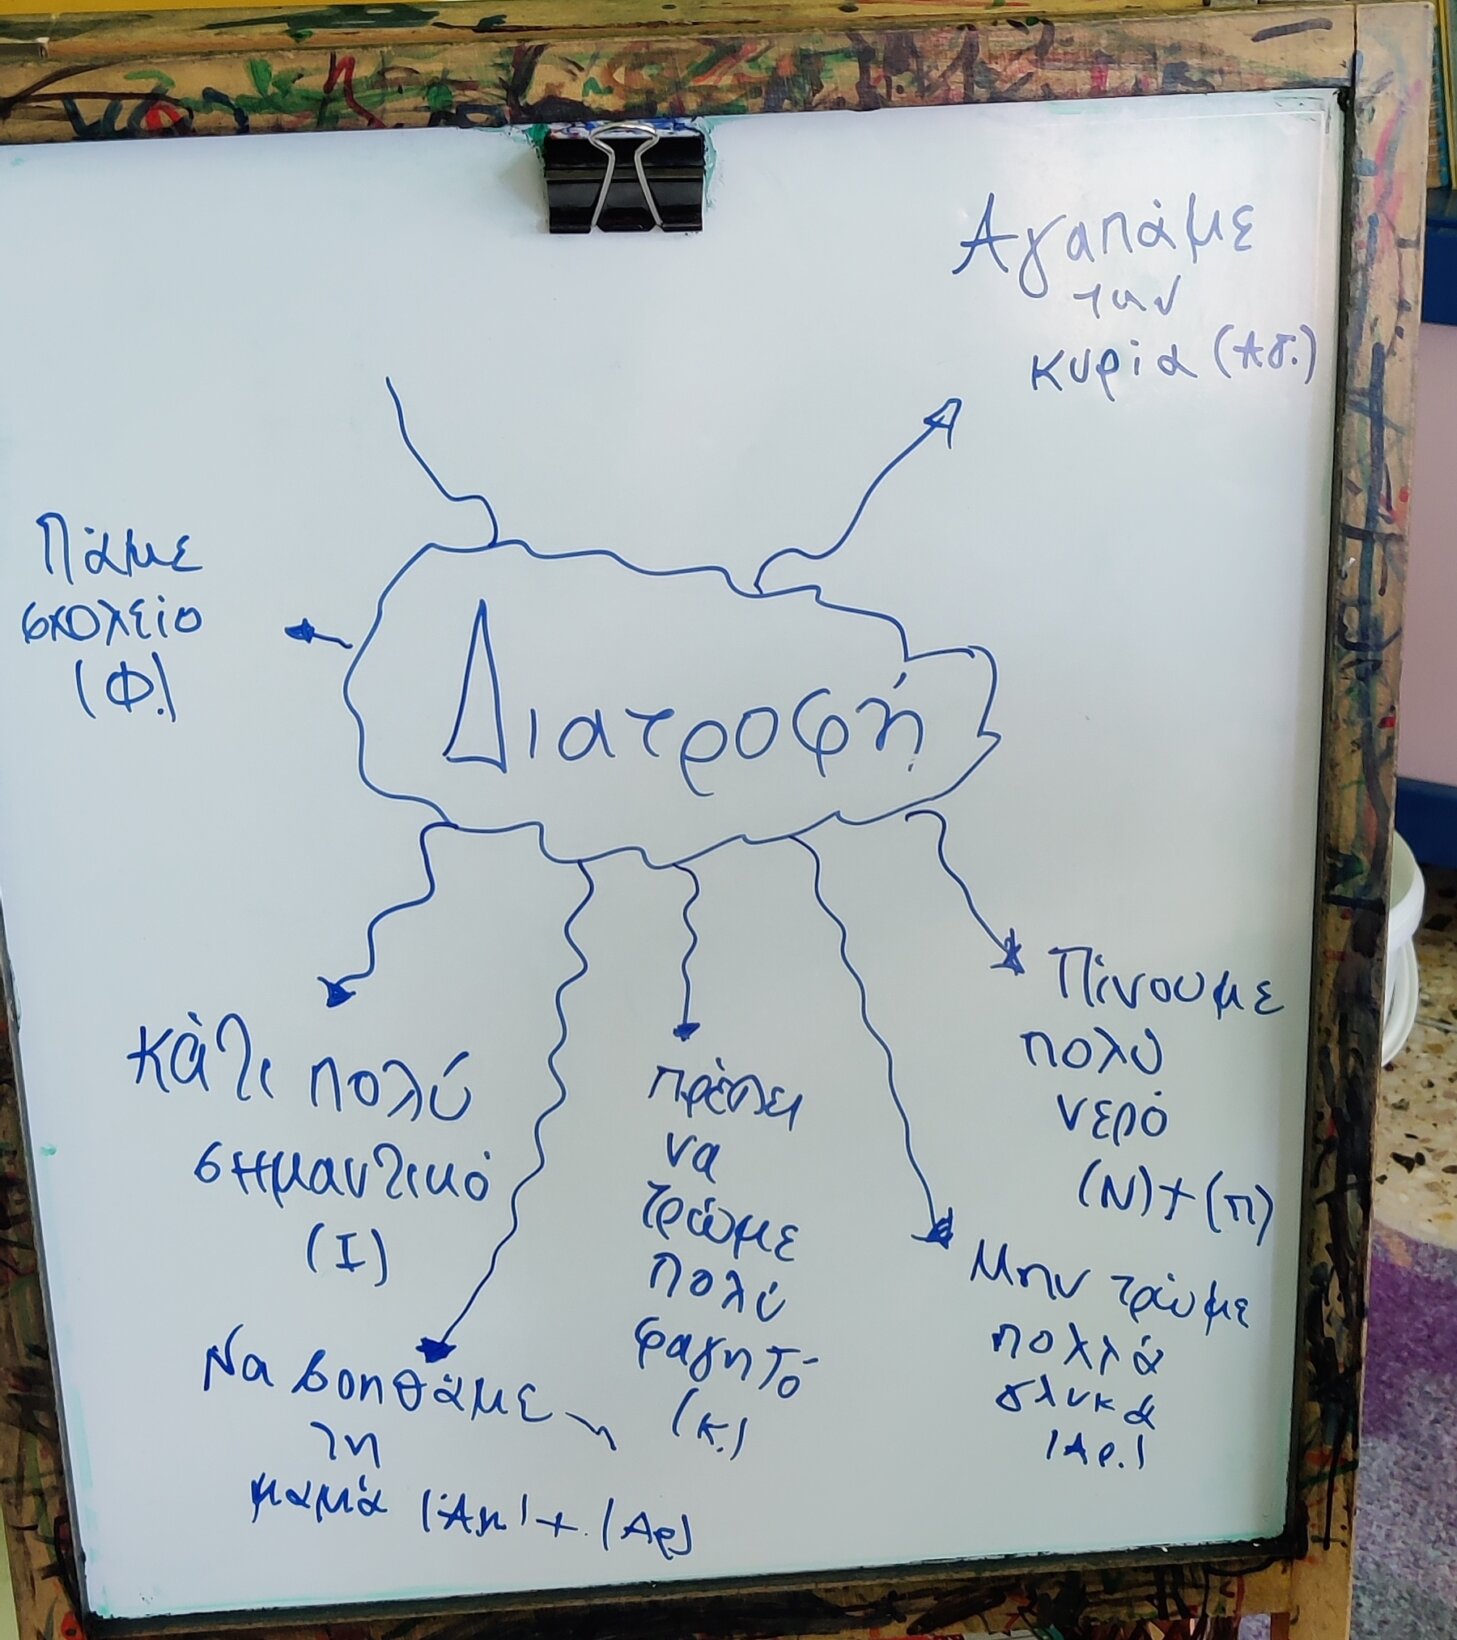 Αγαπάμε
την
κυρία (Αγ.)
Πάμε
σχολείο
(Φ.)
Διατροφή
Πίνουμε
πολύ
νερό
(Ν)+(Π)
κάτι πολύ
σημαντικό
(Ι)
πρέπει
να
τρώμε
πολύ
φαγητό
(κ.)
Μην τρώμε
πολλά
γλυκά
(Αρ.)
Να βοηθάμε
τη
μαμά (Αγ) + (Αρ)